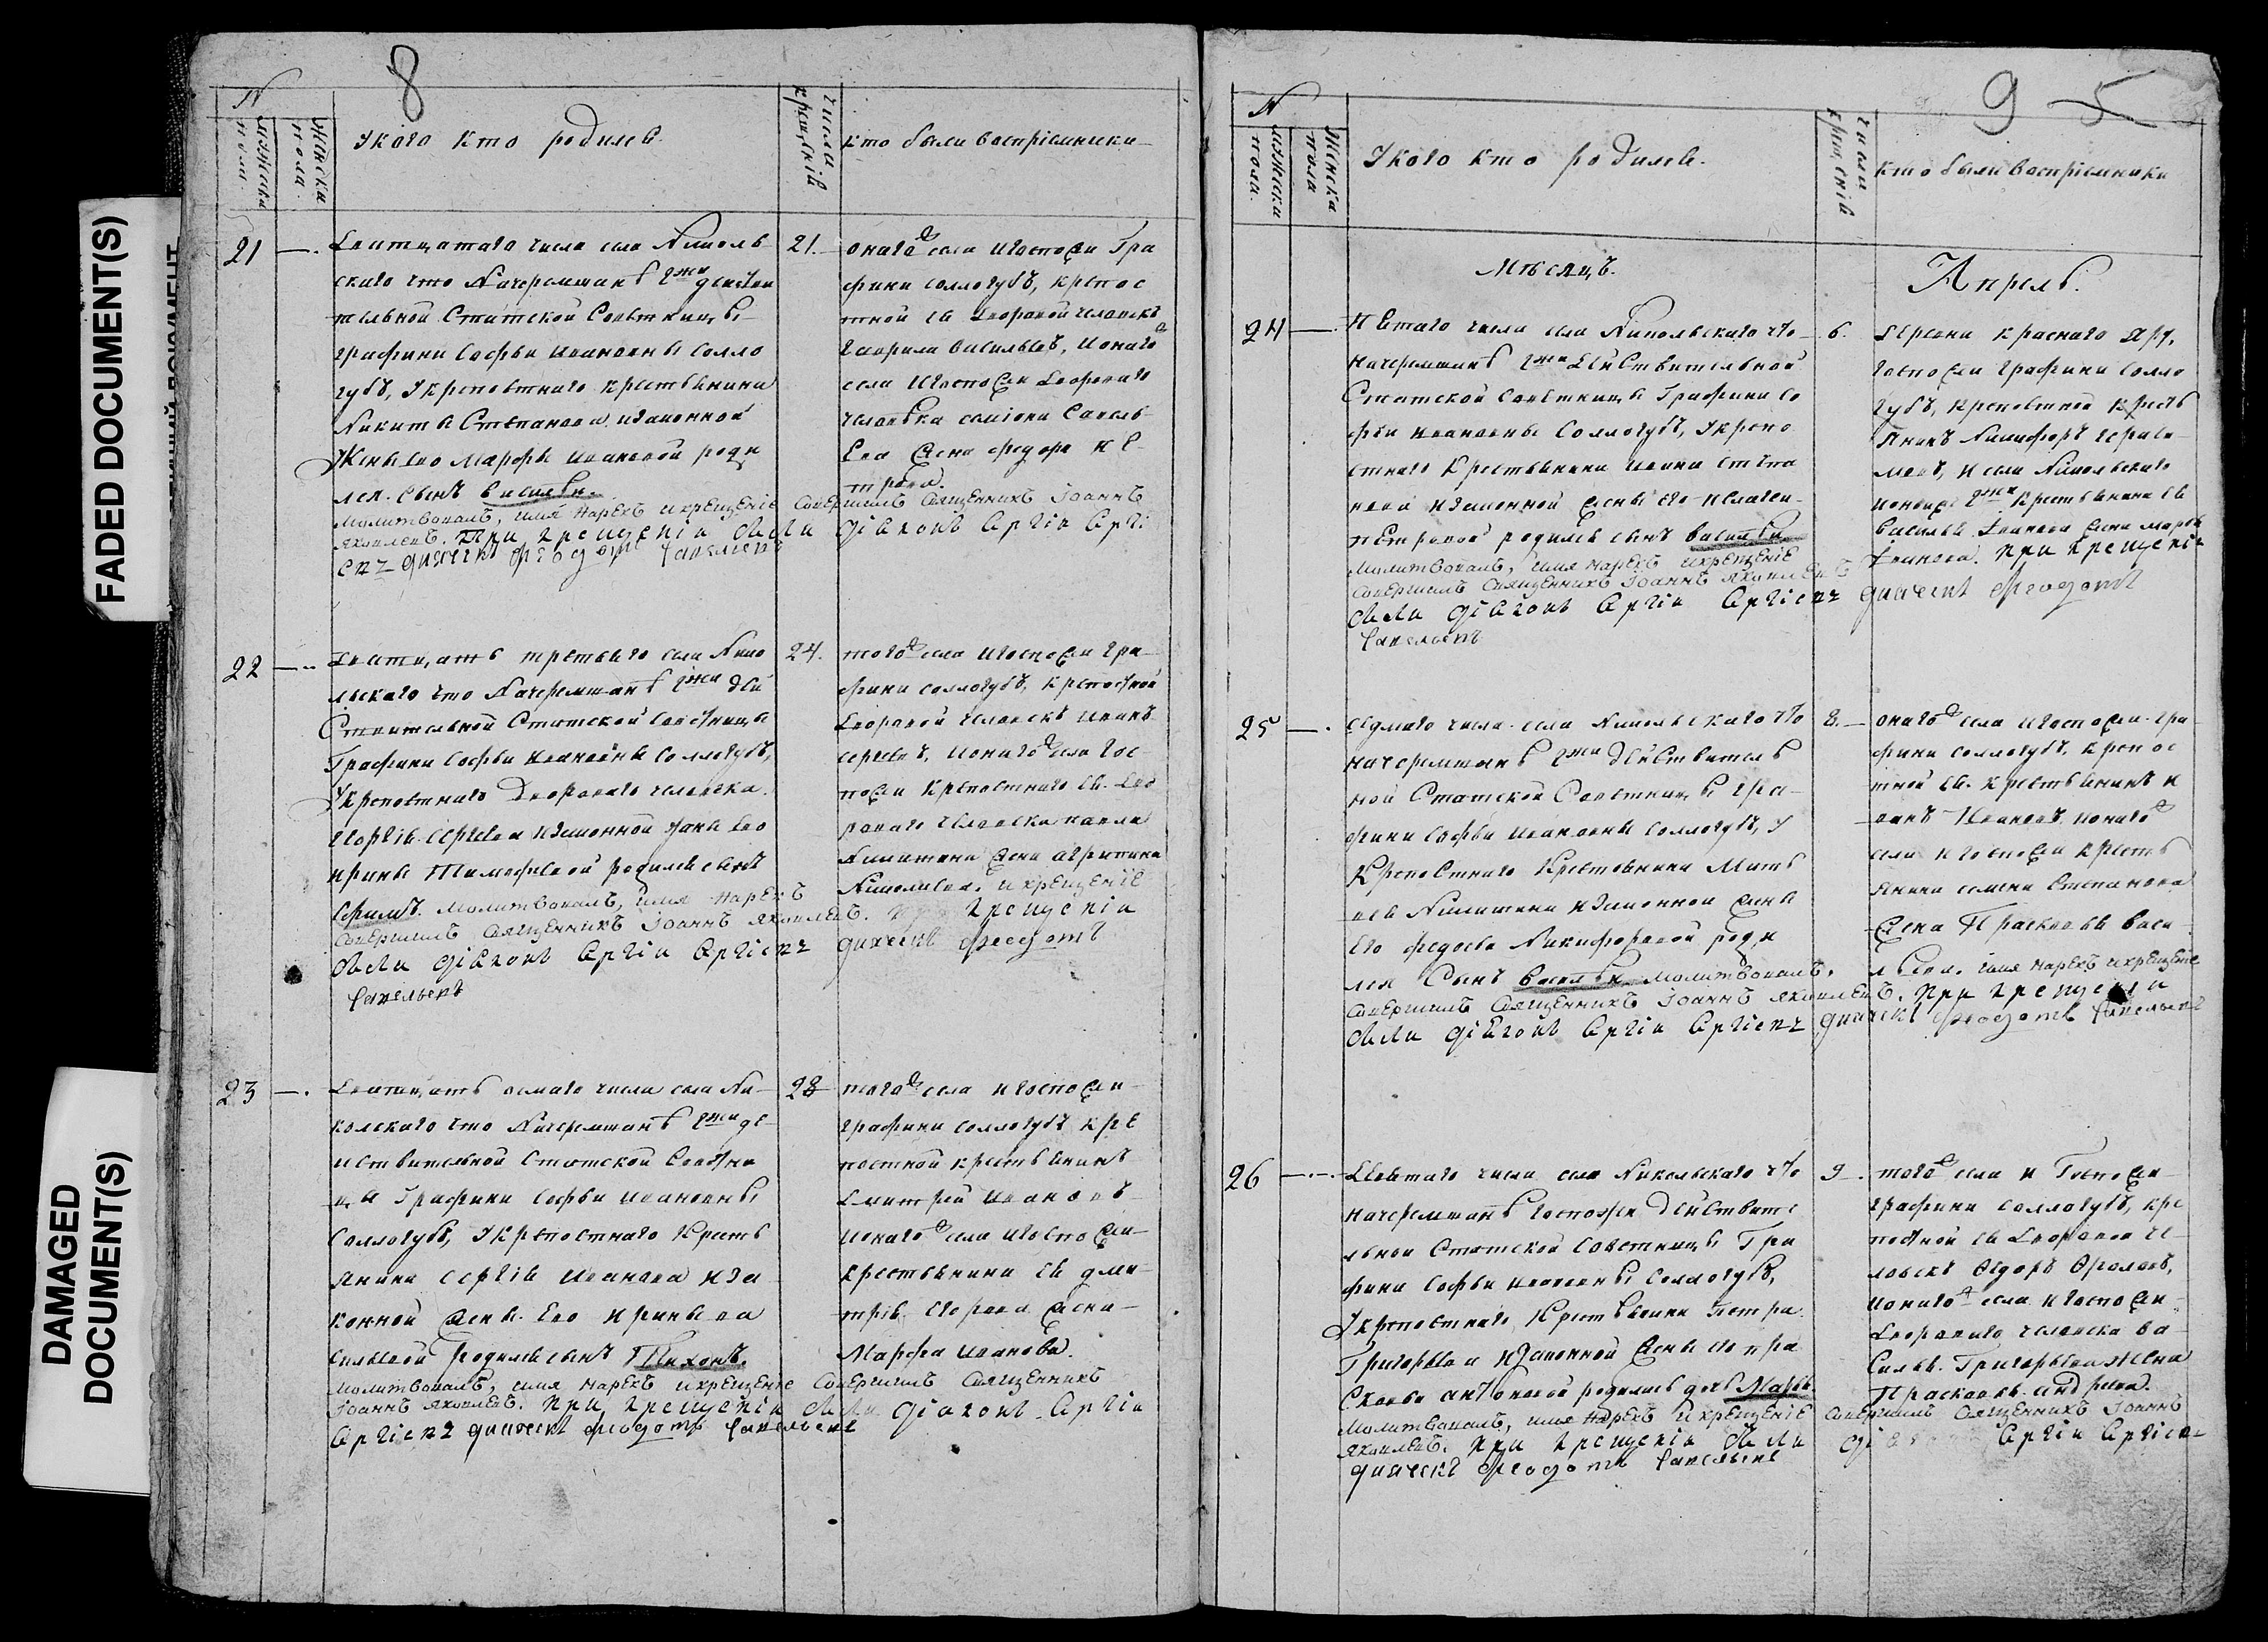 FADED DOCUMENT(S)
DAMAGED
DOCUMENT(S)
8
N
мужеска пола
Женска пола.
У кого кто родился.
числа крещенiя
кто были воспрiемники
21
Дватцатаго числа села Николь
скаго что Начеремшанѣ гжи действи
тельной Статской Советницы
графини Софьи Ивановны Солло
губъ, у крепостнаго крестьянина
Никиты Степанова изаконной
Жены Его Марфы Ивановой роди
лся. сынъ василiй.
молитвовалъ, имя нарекъ икрещенiе совершилъ священникъ Iоаннъ
яковлевъ. При крещенiи были дiаконъ Сергiй Сергi
евъ дьячекъ Феодотъ Савельевъ
21.
онаго села игоспожи Гра
фини соллогубъ, крепос
тной ея дворовой человекъ
Гаврила васильевъ, ионаго
села игоспожи двороваго
человѣка
Ева жена федора Пе
трова.
22
Дватцать третьяго села Нико
льскаго что Начеремшанѣ гжи дей
Ствительной Статской Советницы
Графини Софьи Ивановны Соллогубъ,
У крепостнаго Двороваго человека
Георгiя Сергеева изаконной жены Ево
ирины Тимофеевой родился сынъ
Ефимъ. Молитвовалъ, имя нарекъ
икрещенiе
совершилъ священникъ Iоаннъ яковлевъ. При крещенiи
были дiаконъ Сергiй Сергiевъ дьячекъ Феодотъ
Савельевъ
24.
тогоже села игоспожи гра
фини соллогубъ, крепостной
дворовой человекъ иванъ
сергеевъ, ионаго села гос
пожи крепостнаго ея дво
роваго человека павла
Никитина жена агрипина
Николаева.
23
Дватцать осмаго числа села Ни
колскаго что Начеремшанѣ гжи де
йствительной Статской Советни
цы Графини Софьи Ивановны
Соллогубъ, У крепостнаго Кресть
янина Сергiя Иванова иза
конной жены Ево ирины ва
сильевой родился сынъ Тихонъ.
молитвовалъ, имя нарекъ икрещенiе совершилъ священникъ
Iоаннъ яковлевъ. При крещенiи были дiаконъ Сергiй
Сергiевъ дьячекъ Феодотъ Савельевъ
28
того села игоспожи
графини соллогубъ кре
постной крестьянинъ
Дмитрей Ивановъ
ионаго села игоспожи
крестьянина ея дми
трiя Егорова жена
Марфа Иванова.
9 5
N
мужеска пола.
Женска пола
У кого кто родился.
числа крещенiя
кто были воспрiемники
Месяцъ.
Апрель.
24
Пятаго числа села Никольскаго что
начеремшанѣ гжи Действительной
Статской Советницы Графини Со
фьи Ивановны Соллогубъ, У крепо
стнаго Крестьянина Ивана Степа
нова изаконной жены его
петровой родился сынъ василiй.
молитвовалъ, имя нарекъ икрещенiе
совершилъ священникъ Iоаннъ яковлевъ
были дiаконъ Сергiй Сергiевъ дьячекъ Феодотъ
Савельевъ
6.
деревни краснаго яру,
госпожи графини солло
губъ, крепостной кресть
янинъ Никифоръ
и села Никольскаго
гжи крестьянина ея
Василья Иванова жена марфа
Иванова. при крещенiи
25
седмаго числа села Никольскаго что
начеремшанѣ гжи действитель
ной Статской Советницы гра
фини Софьи Ивановны соллогубъ, У
Крепостнаго Крестьянина Мать
вея Никитина изаконной жены
Его федосьи Никифоровой роди
лся Сынъ Василiй. молитвовалъ,
имя нарекъ икрещенiе
совершилъ священникъ Iоаннъ яковлевъ. При крещенiи
были дiаконъ Сергiй Сергiевъ дьячекъ Феодотъ Савельевъ
8.
онаго села игоспожи гра
фини соллогубъ, крепос
тной ея крестьянинъ и
ванъ Ивановъ. ионаго
села игоспожи кресть
янина семена Степанова
жена Прасковья васи
льева.
26
Девятаго числа села Никольскаго что
начеремшанѣ Госпожи действите
льной Статской Советницы Гра
фини Софьи Ивановны Соллогубъ,
У крепостнаго Крестьянина Петра
Григорьева изаконной жены его пра
сковьи антоновой родилась дочь Марья.
молитвовалъ, имя нарекъ икрещенiе совершилъ священникъ Iоаннъ
яковлевъ. при крещенiи были дiаконъ Сергiй Сергiевъ
дьячекъ Феодотъ Савельевъ
9.
того села и Госпожи
графини соллогубъ, кре
постной ея дворовой че
ловекъ Федоръ Фроловъ,
ионаго села игоспожи
двороваго человека ва
силья Григорьева жена
Прасковья андреева.